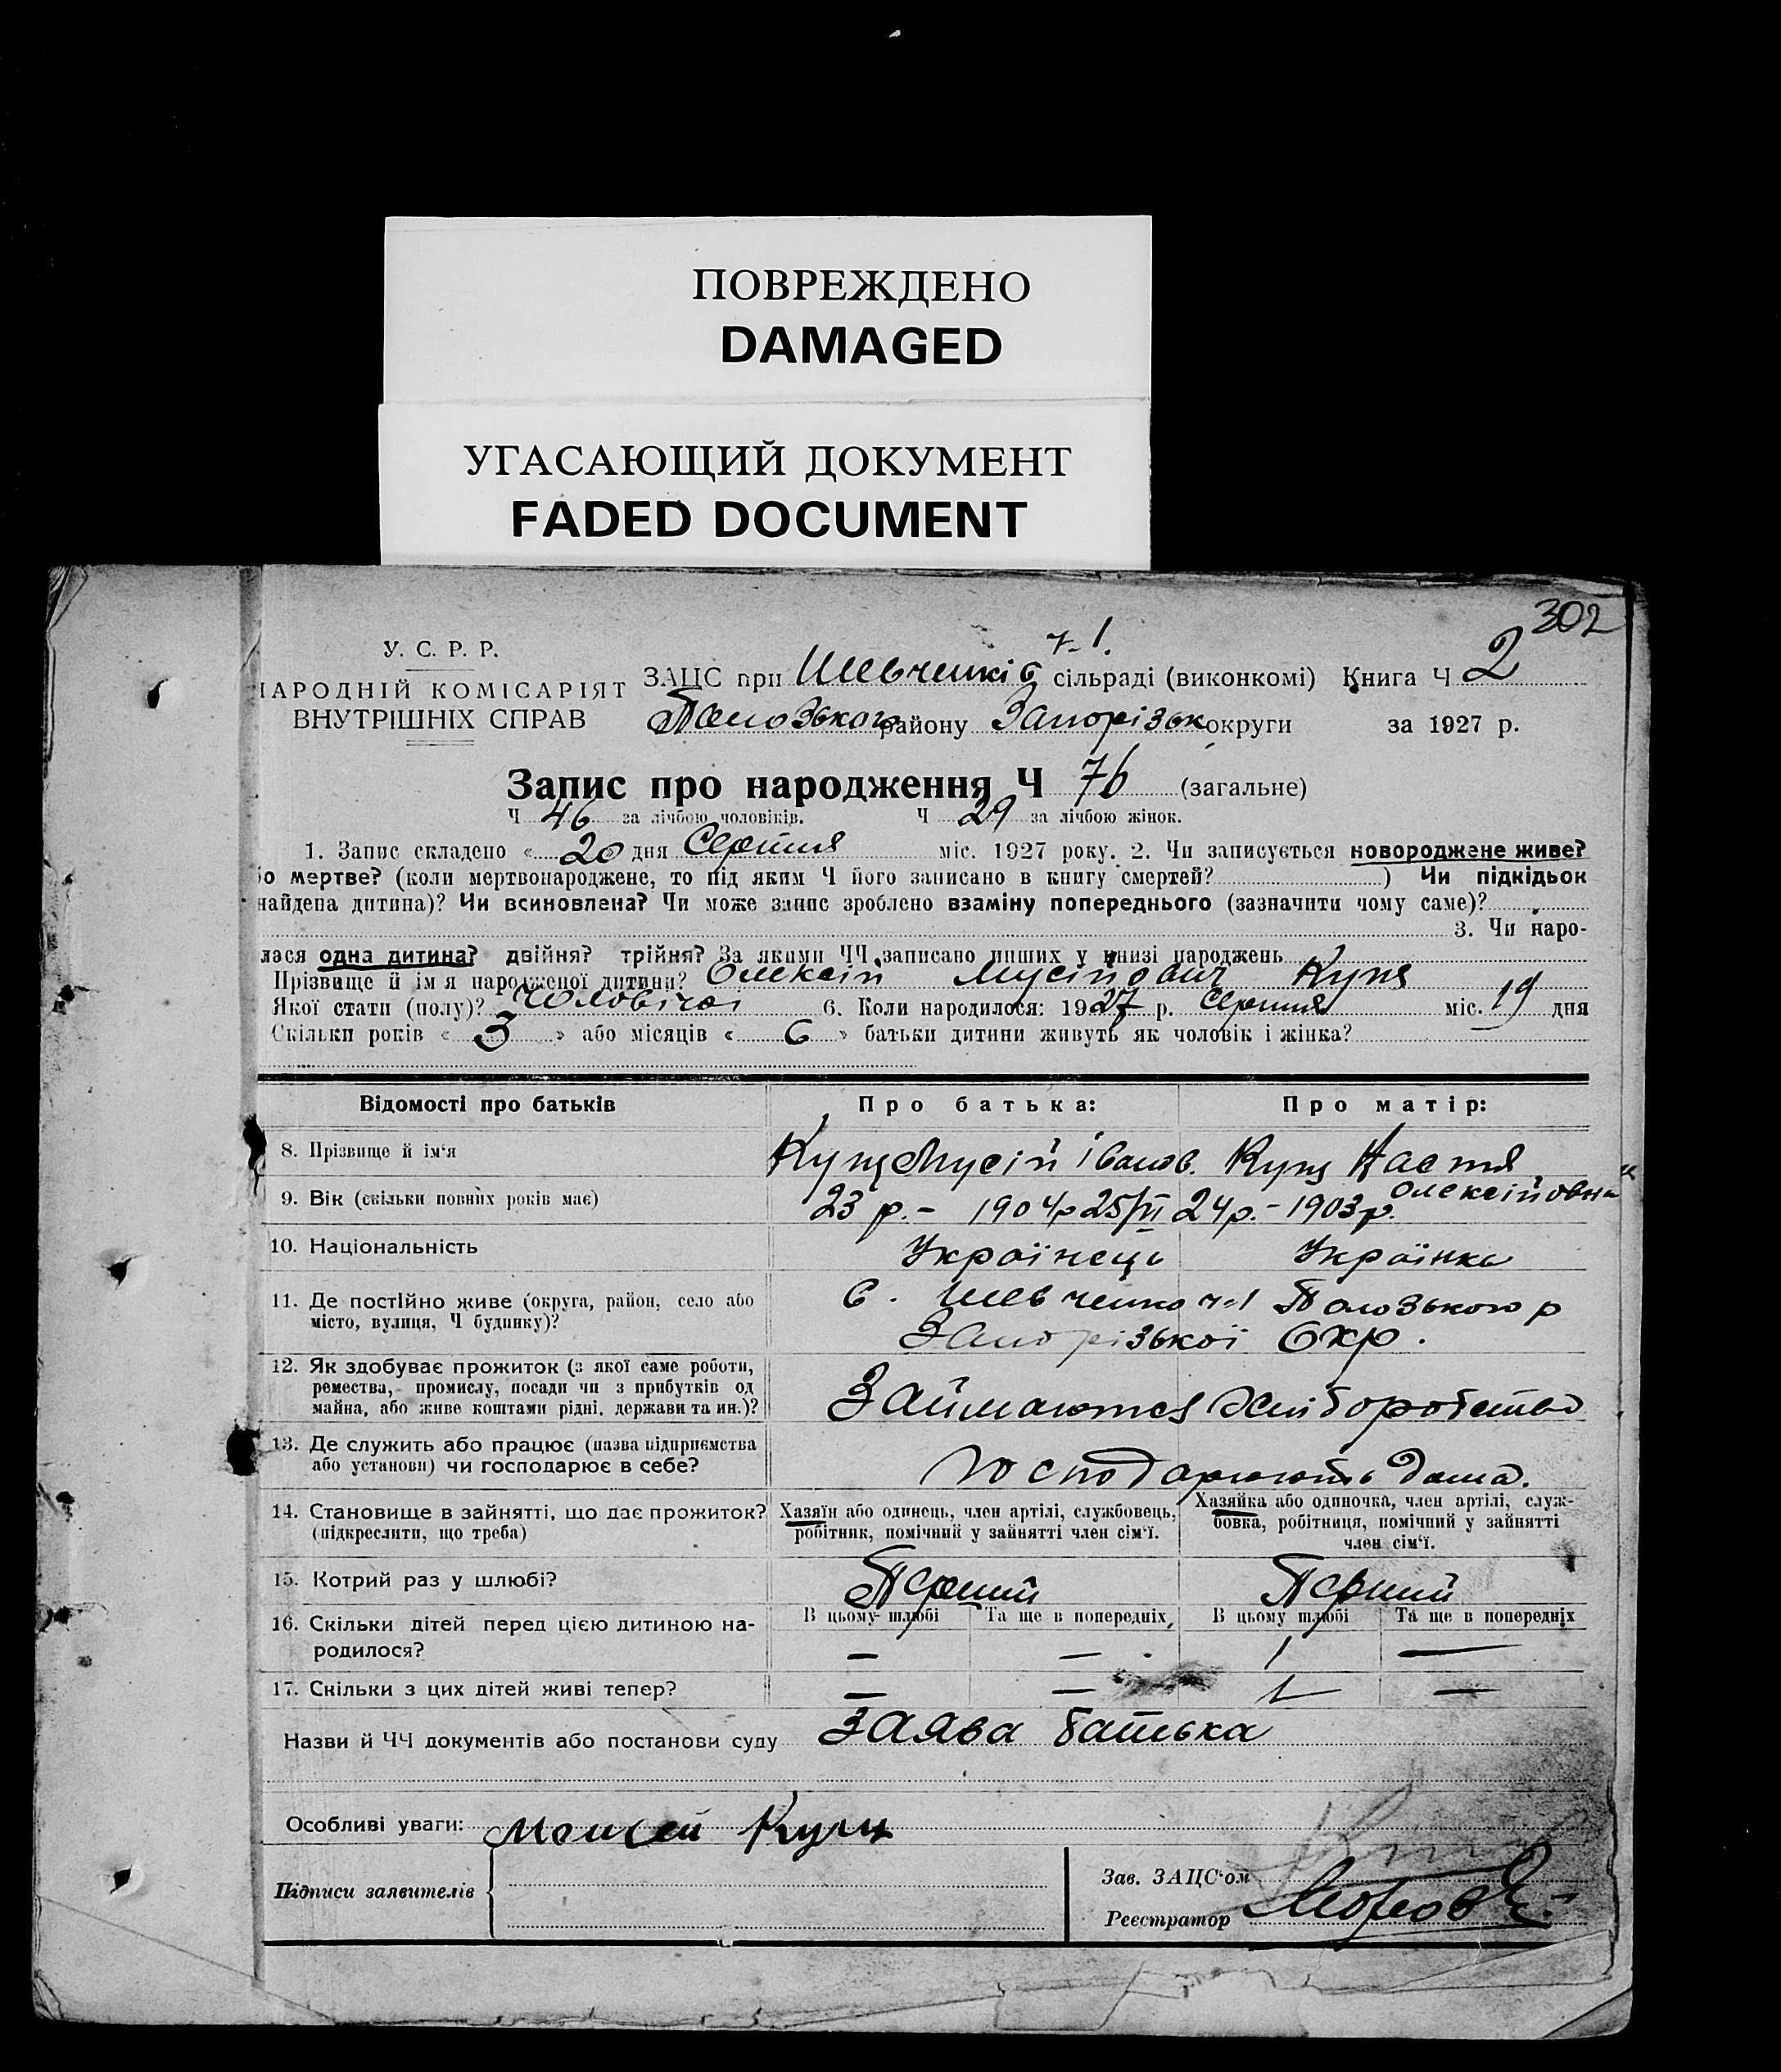 ПОВРЕЖДЕНО
DAMAGED
УГАСАЮЩИЙ ДОКУМЕНТ
FADED DOCUMENT
302
У. С. Р. Р.
АРОДНІЙ КОМІСАРІЯТ
ВНУТРІШНІХ СПРАВ
ч-1.
ЗАЦС при Шевченків сільраді (виконкомі) Книга Ч 2
Пологзького району Запорізьк округи за 1927 р.
Запис про народження Ч 76 (загальне)
Ч 46 за лічбою чоловіків. Ч 29 за лічбою жінок.
1. Запис складено « 20 » дня Серпня міс. 1927 року. 2. Чи записується новороджене живе?
о мертве? (коли мертвонароджене, то під яким Ч його записано в книгу смертей? ) Чи підкідьок
найдена дитина)? Чи всиновлена? Чи може запис зроблено взаміну попереднього (зазначити чому саме)?
3. Чи наро-
лася одна дитина? двійня? трійня? За якими ЧЧ записано инших у книзі народжень
Прізвище й ім'я народженої дитини? Олексій Мусійович Куц
Якої стати (полу)? Чоловічої 6. Коли народилося: 1927 р. Серпня міс. 19 дня
Скільки років « 3 » або місяців « 6 » батьки дитини живуть як чоловік і жінка?
Відомості про батьків Про батька: Про матір:
8. Прізвище й ім'я Куц Мусій Іванов. Куц Настя
Олексійовна
9. Вік (скільки повних років має) 23 р. - 1904р 25/VII 24р. - 1903р.
10. Національність Українець Українка
11. Де постійно живе (округа, район, село або
місто, вулиця, Ч будинку)?
С. Шевченко ч-1 Пологзького р
Запорізької Окр.
12. Як здобуває прожиток (з якої саме роботи,
ремества, промислу, посади чи з прибутків од
майна, або живе коштами рідні, держави та ин.)?
Займаются хліборобство
13. Де служить або працює (назва підприємства
або установи) чи господарює в себе?
господарюють дома.
14. Становище в зайнятті, що дає прожиток?
(підкреслити, що треба)
Хазяїн або одинець, член артілі, службовець,
робітник, помічний у зайнятті член сім'ї.
Хазяйка або одиночка, член артілі, служ-
бовка, робітниця, помічний у зайнятті
член сім'ї.
15. Котрий раз у шлюбі? Перший Перший
В цьому шлюбі Та ще в попередніх В цьому шлюбі Та ще в попередніх
16. Скільки дітей перед цією дитиною на-
родилося? — — 1 —
17. Скільки з цих дітей живі тепер? — — 1 —
Назви й ЧЧ документів або постанови суду Заява батька
Особливі уваги: Моисей Куц
Підписи заявителів
Зав. ЗАЦС'ом
Реєстратор